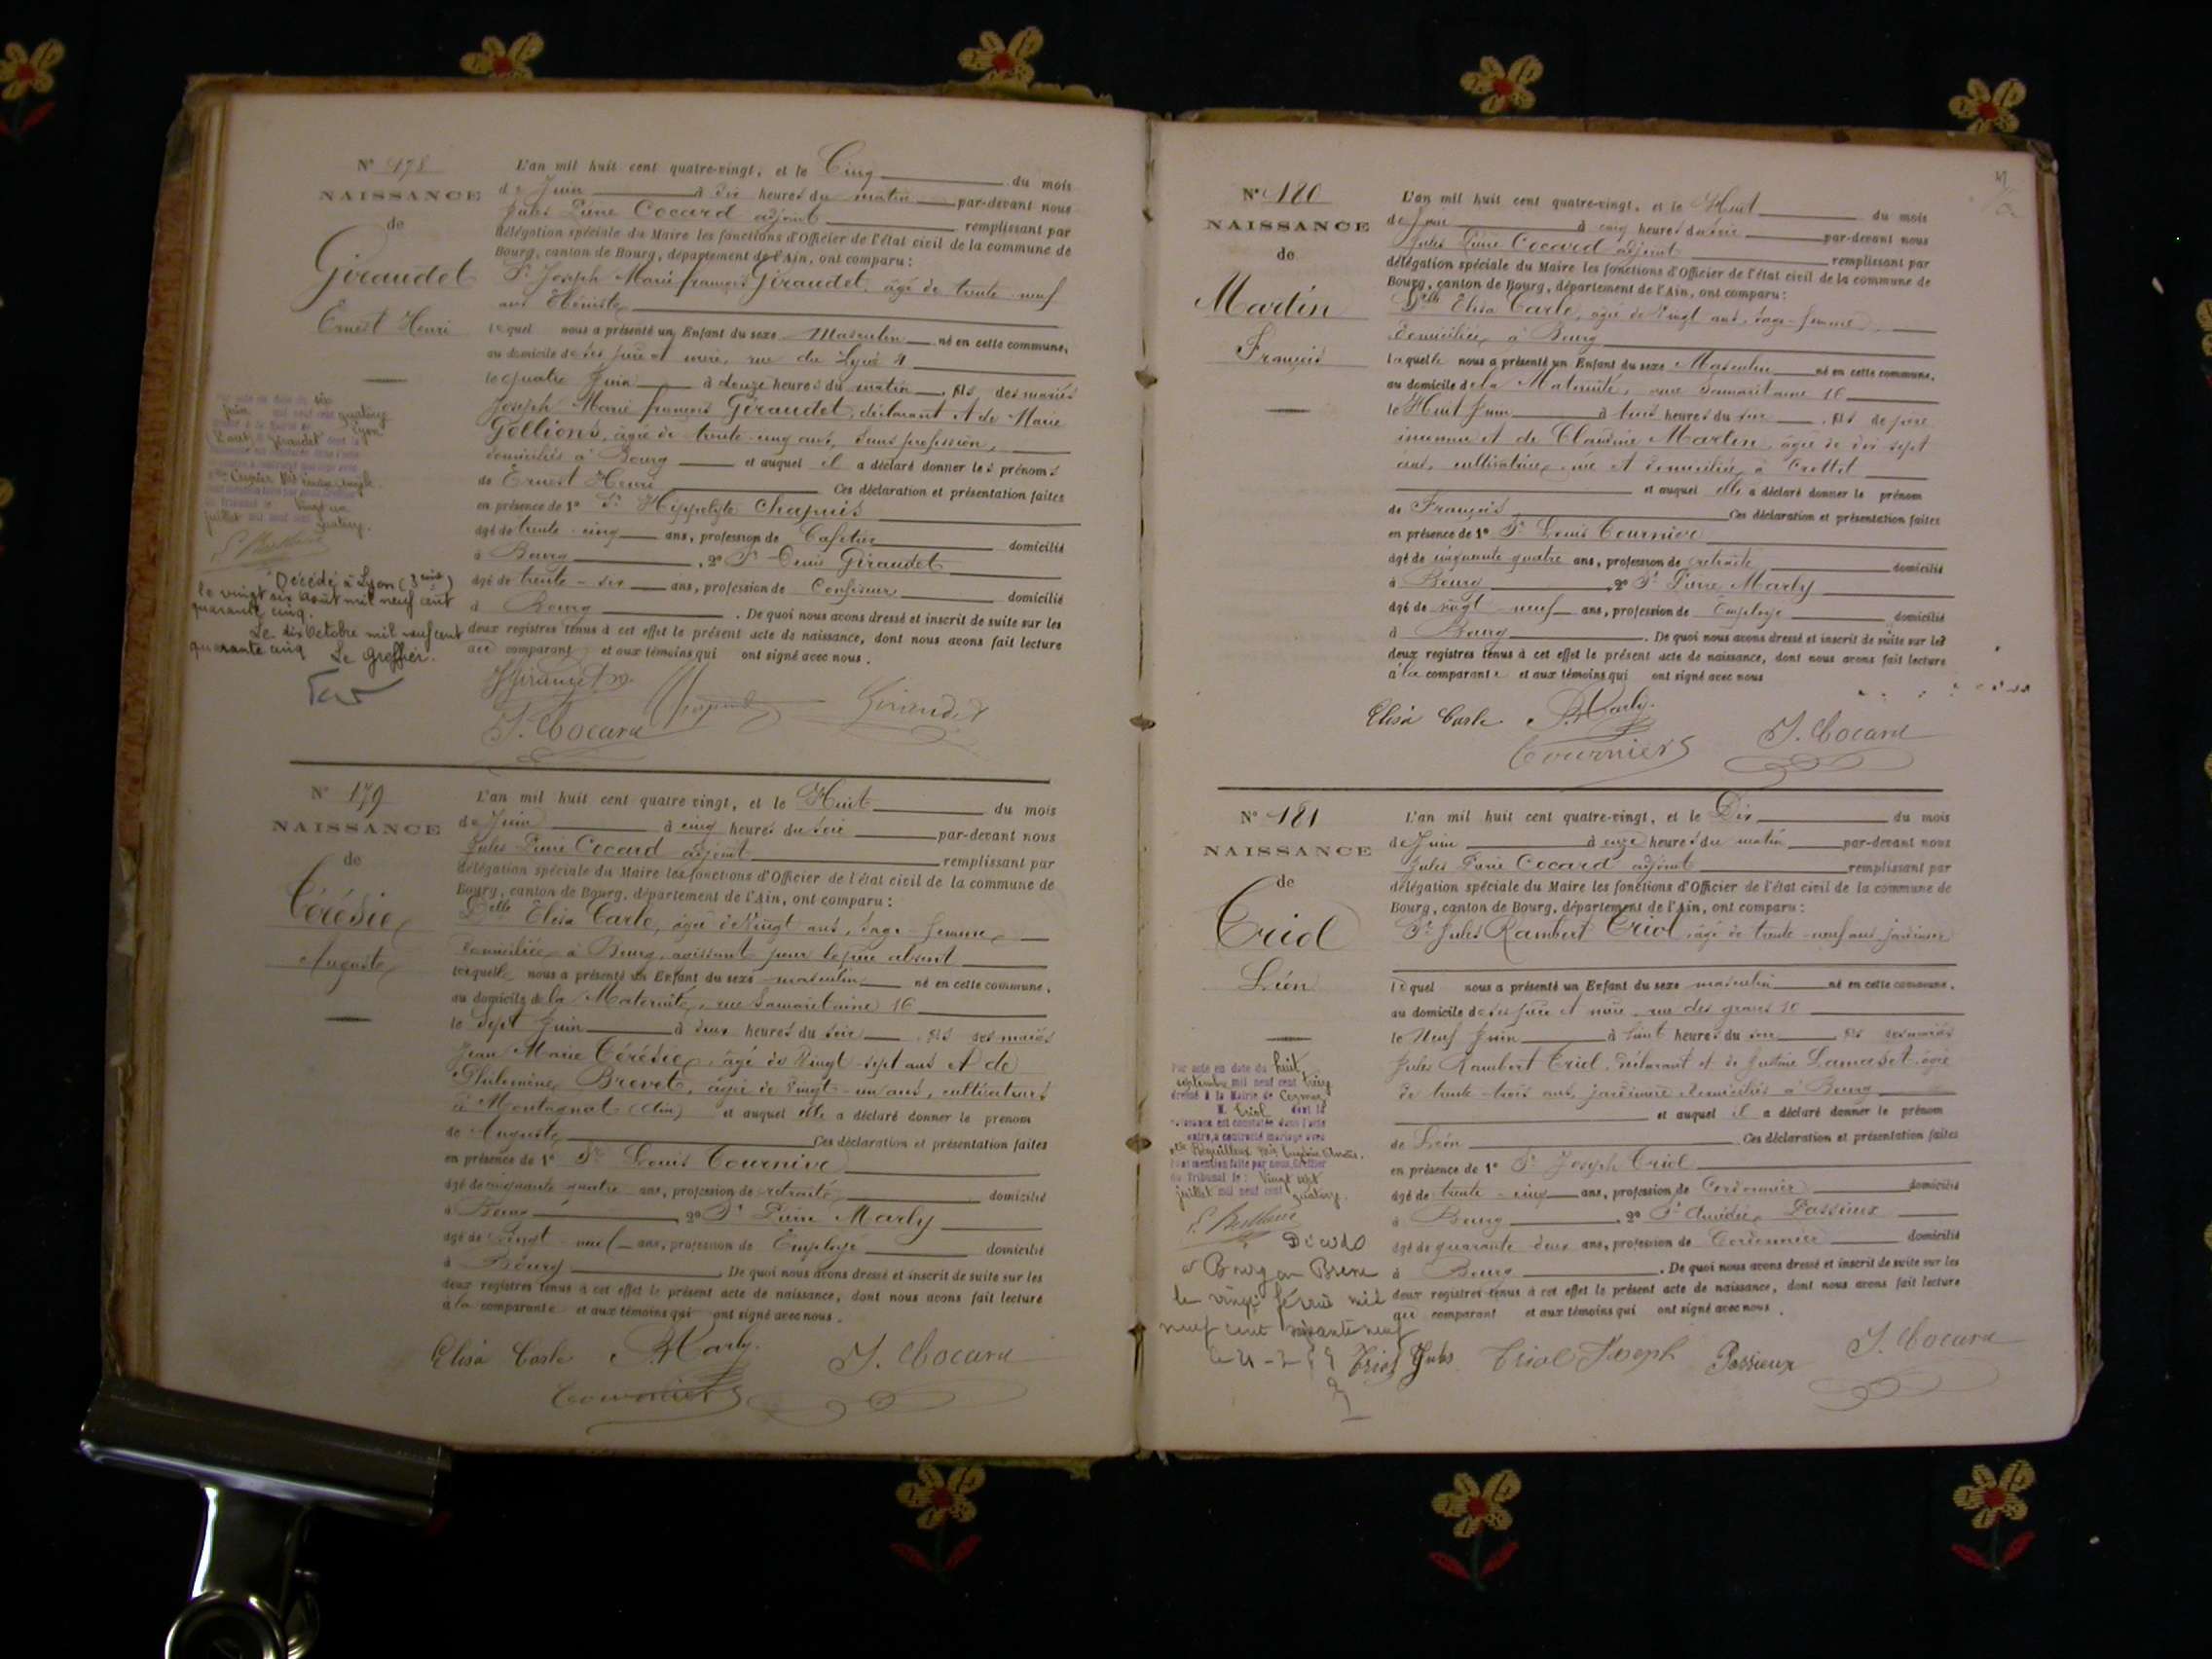 N° 178
NAISSANCE
de
Giraudet
Ernest Henri
L'an mil huit cent quatre-vingt, et le Cinq du mois
de Juin à dix heures du matin par-devant nous
Jules Pierre Cocard adjoint remplissant par
délégation spéciale du Maire les fonctions d'Officier de l'état civil de la commune de
Bourg, canton de Bourg, département de l'Ain, ont comparu :
Sr Joseph Marie françois Giraudet, âgé de trente-neuf
ans Ebéniste
lequel nous a présenté un Enfant du sexe Masculin né en cette commune,
au domicile de ses père et mère, rue du Lycée
le quatre Juin à douze heures du matin, fils des mariés
Joseph Marie françois Giraudet, déclarant et de Marie
Gollion, âgée de trente-cinq ans, sans profession,
domiciliés à Bourg et auquel il a déclaré donner les prénoms
de Ernest Henri Ces déclaration et présentation faites
en présence de 1° Sr Hippolyte Chapuis
âgé de trente-cinq ans, profession de Cafetier domicilié
à Bourg, 2° Sr Denis Giraudet
âgé de trente-six ans, profession de Confiseur domicilié
à Bourg. De quoi nous avons dressé et inscrit de suite sur les
deux registres tenus à cet effet le présent acte de naissance, dont nous avons fait lecture
au comparant et aux témoins qui ont signé avec nous.
Giraudet
J. Cocard
Par acte en date du six
juin mil neuf cent quatorze
Lyon
Giraudet dont la
vingt un
juillet mil neuf cent quatorze.
Décédé à Lyon (3ème)
le vingt six Août mil neuf cent
quarante cinq.
Le dix Octobre mil neuf cent
quarante cinq Le Greffier.
N° 179
NAISSANCE
de
Térésie
Auguste
L'an mil huit cent quatre-vingt, et le Huit du mois
de Juin à cinq heures du soir par-devant nous
Jules Pierre Cocard adjoint remplissant par
délégation spéciale du Maire les fonctions d'Officier de l'état civil de la commune de
Bourg, canton de Bourg, département de l'Ain, ont comparu :
Delle Elisa Carle, âgée de vingt ans, sage-femme,
domiciliée à Bourg, agissant pour le père absent
laquelle nous a présenté un Enfant du sexe masculin né en cette commune,
au domicile de la Maternité, rue Samaritaine 16
le sept Juin à deux heures du soir, fils des mariés
Jean Marie Térésie, âgé de vingt-sept ans et de
Philomène Brevet, âgée de vingt-un ans, cultivateurs
à Montagnat (Ain) et auquel elle a déclaré donner le prénom
de Auguste Ces déclaration et présentation faites
en présence de 1° Sr Louis Tournier
âgé de cinquante quatre ans, profession de retraité domicilié
à Bourg, 2° Sr Pierre Marly
âgé de vingt-neuf ans, profession de Employé domicilié
à Bourg. De quoi nous avons dressé et inscrit de suite sur les
deux registres tenus à cet effet le présent acte de naissance, dont nous avons fait lecture
à la comparante et aux témoins qui ont signé avec nous.
Elisa Carle P. Marly. J. Cocard
Tourniers
N° 180
NAISSANCE
de
Martin
François
L'an mil huit cent quatre-vingt, et le Huit du mois
de Juin à cinq heures du soir par-devant nous
Jules Pierre Cocard adjoint remplissant par
délégation spéciale du Maire les fonctions d'Officier de l'état civil de la commune de
Bourg, canton de Bourg, département de l'Ain, ont comparu :
Delle Elisa Carle, âgée de vingt ans, sage-femme,
domiciliée à Bourg
laquelle nous a présenté un Enfant du sexe Masculin né en cette commune,
au domicile de la Maternité, rue Samaritaine 16
le Huit Juin à trois heures du soir, fils de père
inconnu et de Claudine Martin, âgée de dix-sept
ans, cultivatrice, née et domiciliée à Crottet
et auquel elle a déclaré donner le prénom
de François Ces déclaration et présentation faites
en présence de 1° Sr Louis Tournier
âgé de cinquante quatre ans, profession de retraité domicilié
à Bourg, 2° Sr Pierre Marly
âgé de vingt-neuf ans, profession de Employé domicilié
à Bourg. De quoi nous avons dressé et inscrit de suite sur les
deux registres tenus à cet effet le présent acte de naissance, dont nous avons fait lecture
à la comparante et aux témoins qui ont signé avec nous
Elisa Carle P. Marly. J. Cocard
Tourniers
N° 181
NAISSANCE
de
Triol
Léon
L'an mil huit cent quatre-vingt, et le Dix du mois
de Juin à onze heures du matin par-devant nous
Jules Pierre Cocard adjoint remplissant par
délégation spéciale du Maire les fonctions d'Officier de l'état civil de la commune de
Bourg, canton de Bourg, département de l'Ain, ont comparu :
Sr Jules Rambert Triol, âgé de trente-neuf ans, jardinier
lequel nous a présenté un Enfant du sexe masculin né en cette commune,
au domicile de ses père et mère, rue des graves 10
le Neuf Juin à huit heures du soir fils des mariés
Jules Rambert Triol, déclarant et de Justine Lamaset, âgée
de trente-trois ans, jardinière domiciliés à Bourg
et auquel il a déclaré donner le prénom
de Léon Ces déclaration et présentation faites
en présence de 1° Sr Joseph Triol
âgé de trente-cinq ans, profession de Cordonnier domicilié
à Bourg, 2° Sr Amédée Passieux
âgé de quarante deux ans, profession de Cordonnier domicilié
à Bourg. De quoi nous avons dressé et inscrit de suite sur les
deux registres tenus à cet effet le présent acte de naissance, dont nous avons fait lecture
au comparant et aux témoins qui ont signé avec nous.
Triol Jules Triol Joseph Passieux J. Cocard
Par acte en date du huit
septembre mil neuf cent treize
dressé à la Mairie de
M. Triol dont la
naissance est constatée dans l'acte
contre, a contracté mariage avec
mention faite par nous, Greffier
du Tribunal le: Vingt sept
juillet mil neuf cent quatorze.
Décédé
à Bourg en Bresse
le vingt février mil
neuf cent soixante neuf